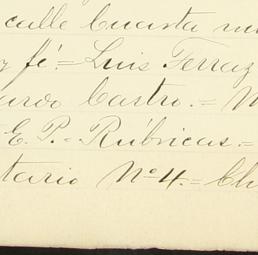 calle Cuarta
fé.= Luis Ferraz
Castro.=
E. P.- Rúbricas.=
tario Nº 4.= Ch